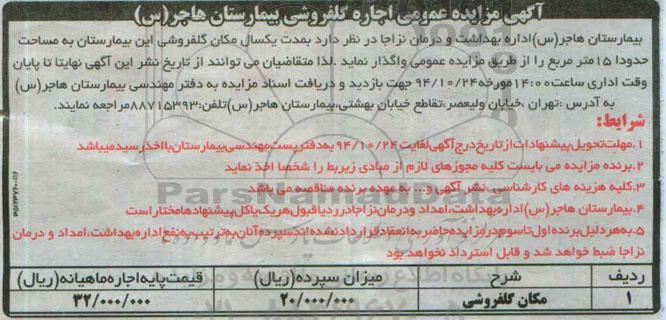 آگهی مزایده عمومی اجاره گلفروشی بیمارستان هاجر(س)
بیمارستان هاجر(س)اداره بهداشت و درمان نزاجا در نظر دارد بمدت یکسال مکان گلفروشی این بیمارستان به مساحت
حدودا ۱۵متر مربع را از طریق مزایده عمومی واگذار نماید .لذا متقاضیان می توانند از تاریخ نشر این آگهی نهایتا تا پایان
وقت اداری ساعت۱۴:۰۰مورخه۹۴/۱۰/۲۴ جهت بازدید و دریافت اسناد مزایده به دفتر مهندسی بیمارستان هاجر(س)
به آدرس :تهران ،خیابان ولیعصر،تقاطع خیابان بهشتی،بیمارستان هاجر(س)تلفن:۸۸۷۱۵۳۹۳مراجعه نمایند.
شرایط:
۱.مهلت تحویل پیشنهادات از تاریخ درج آگهی لغایت ۹۴/۱۰/۲۴ به دفتر پست مهندسی بیمارستان با اخذ رسید میباشد
۲.برنده مزایده می بایست کلیه مجوزهای لازم از مبادی زیربط را شخصا اخذ نماید
۳.کلیه هزینه های کارشناسی ،نشر آگهی و... به عهده برنده مناقصه می باشد
۴.بیمارستان هاجر(س)اداره بهداشت، امداد و درمان نزاجا در رد یا قبول هر یک یا کل پیشنهادها مختار است
۵.به هر دلیل برنده اول تا سوم در مزایده حاضر به انعقاد قرارداد نشده اند سپرده آنان به ترتیب به نفع اداره بهداشت، امداد و درمان
نزاجا ضبط خواهد شد و قابل استرداد نخواهد بود
ردیف شرح میزان سپرده(ریال) قیمت پایه اجاره ماهیانه(ریال)
۱ مکان گلفروشی ۲۰/۰۰۰/۰۰۰ ۳۲/۰۰۰/۰۰۰
ParsNamadData